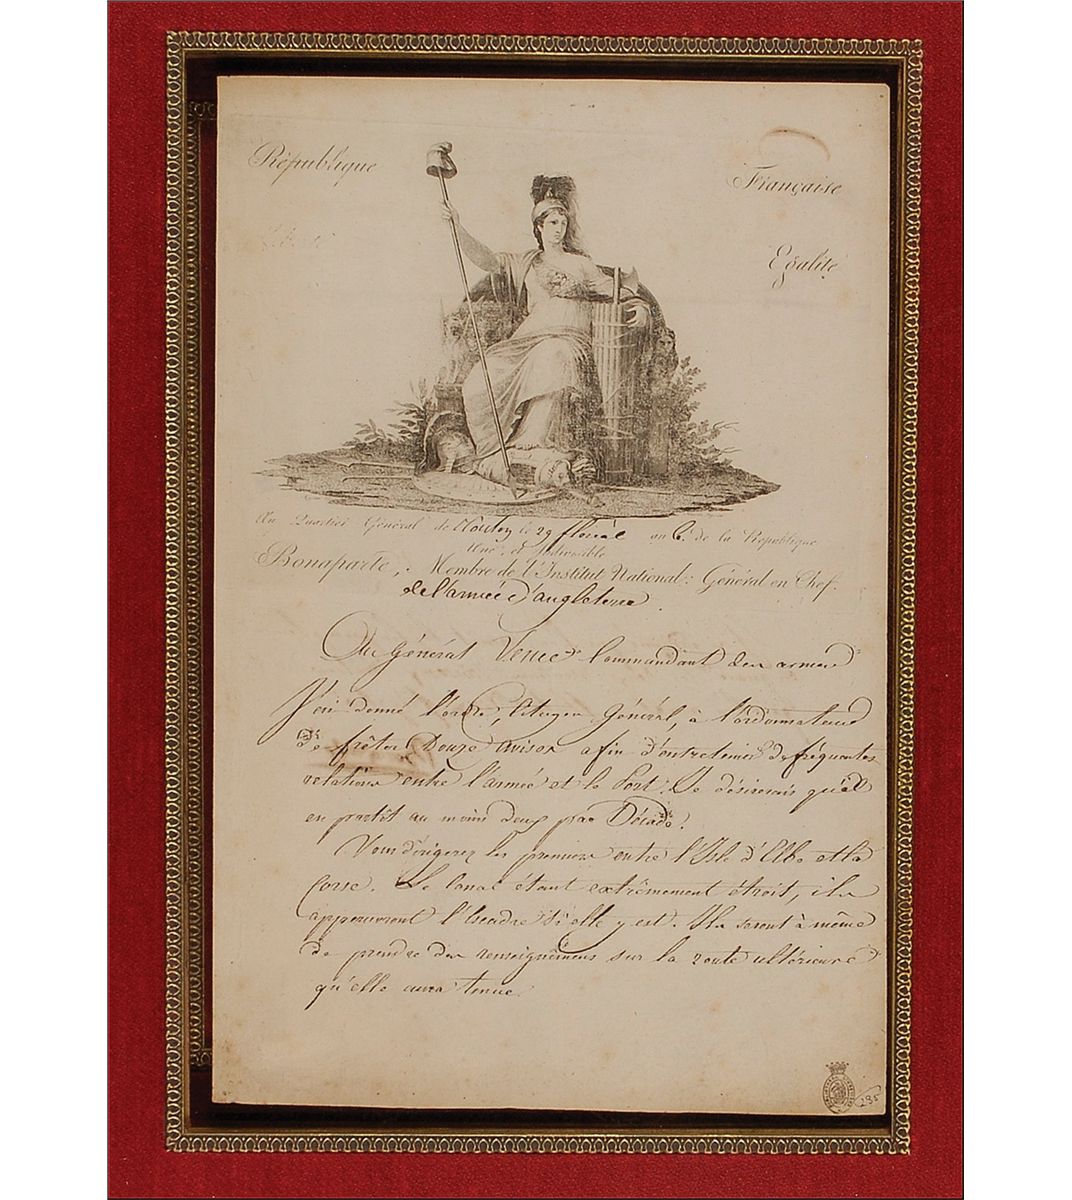 République Française
Liberté Egalité
Au Quartier Général de Toulon le 29 floréal an 6.e de la République
Une et Indivisible
Bonaparte, Membre de l'Institut National: Général en Chef.
de l'armée d'angleterre.
Au Général Vence Commandant des armes
J'ai donné l'ordre, Citoyen Général, à l'ordonnateur
de frêter Douze avisos afin d'entretenir de fréquentes
relations entre l'armée et le Port. Je désirerais qu'il
en partît au moins deux par Décade.
Vous dirigerez les premiers entre l'Isle d'Elbe et la
Corse. Le Canal étant extrêmement étroit, ils
appercevront l'Escadre si elle y est. Ils seront à même
de prendre des renseignemens sur la route ultérieure
qu'elle aura tenue.
235